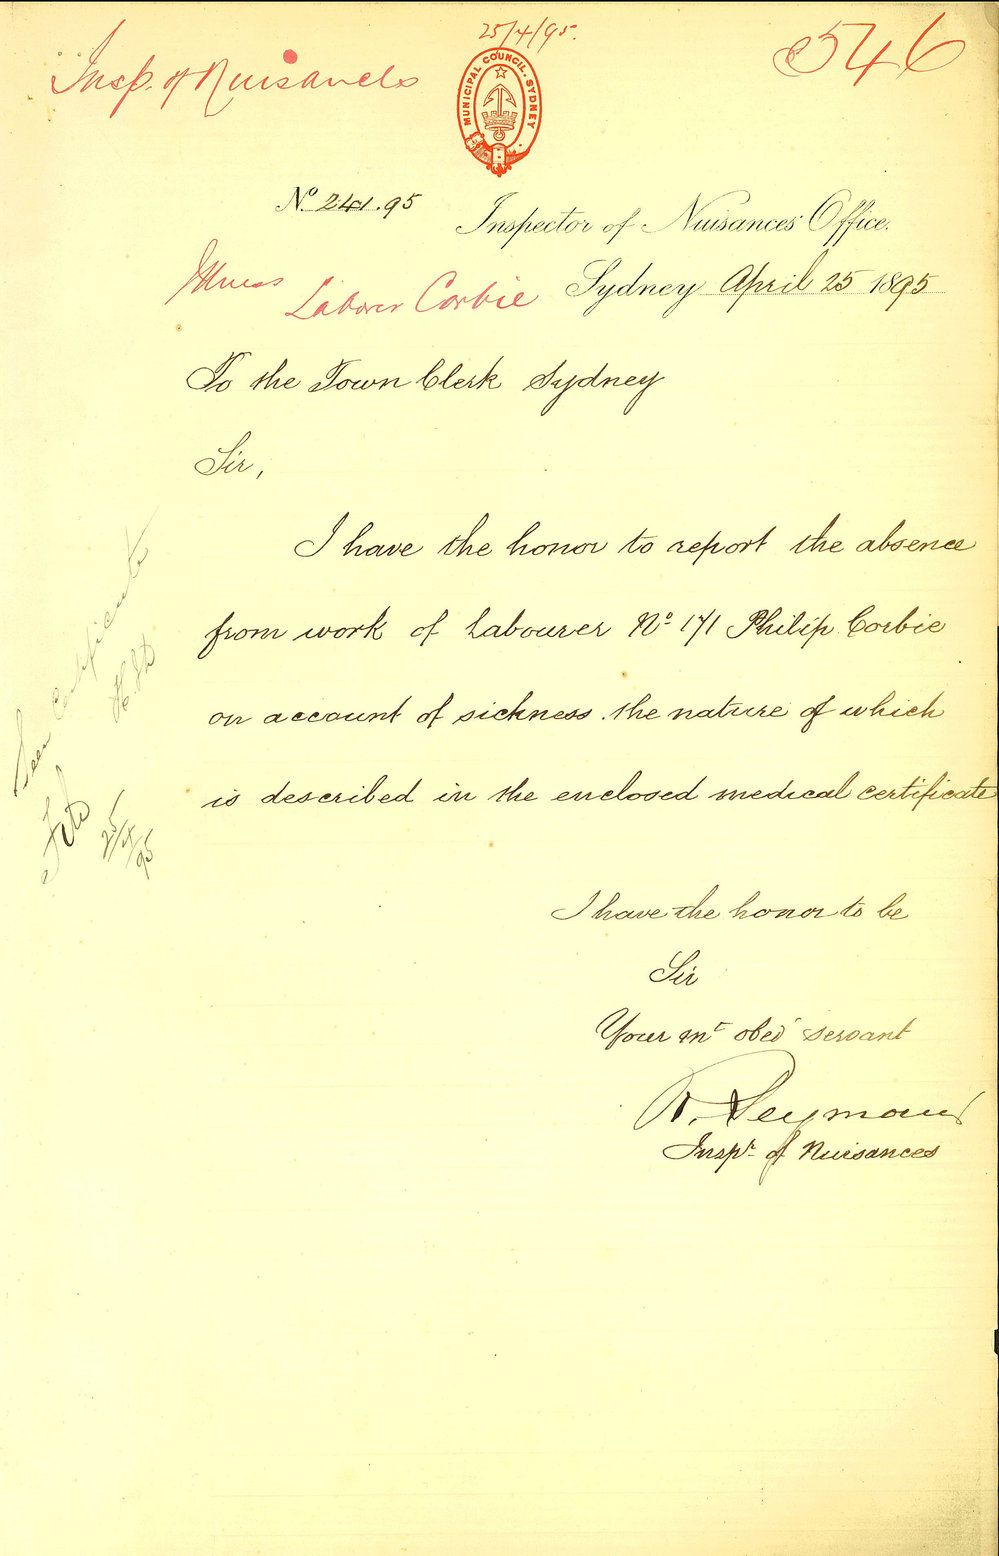 25/4/95.
Insp. of Nuisances
546
MUNICIPAL COUNCIL. SYDNEY
No 241.95
Inspector of Nuisances' Office.
Sydney April 25 1895
Illness
Laborer Corbie
To the Town Clerk Sydney
Sir,
I have the honor to report the absence
from work of Labourer No 171 Philip Corbie
on account of sickness. the nature of which
is described in the enclosed medical certificate
I have the honor to be
Sir
Your mt obedt servant
R. Seymour
Inspr. of Nuisances
Seen Certificate
25/4/95